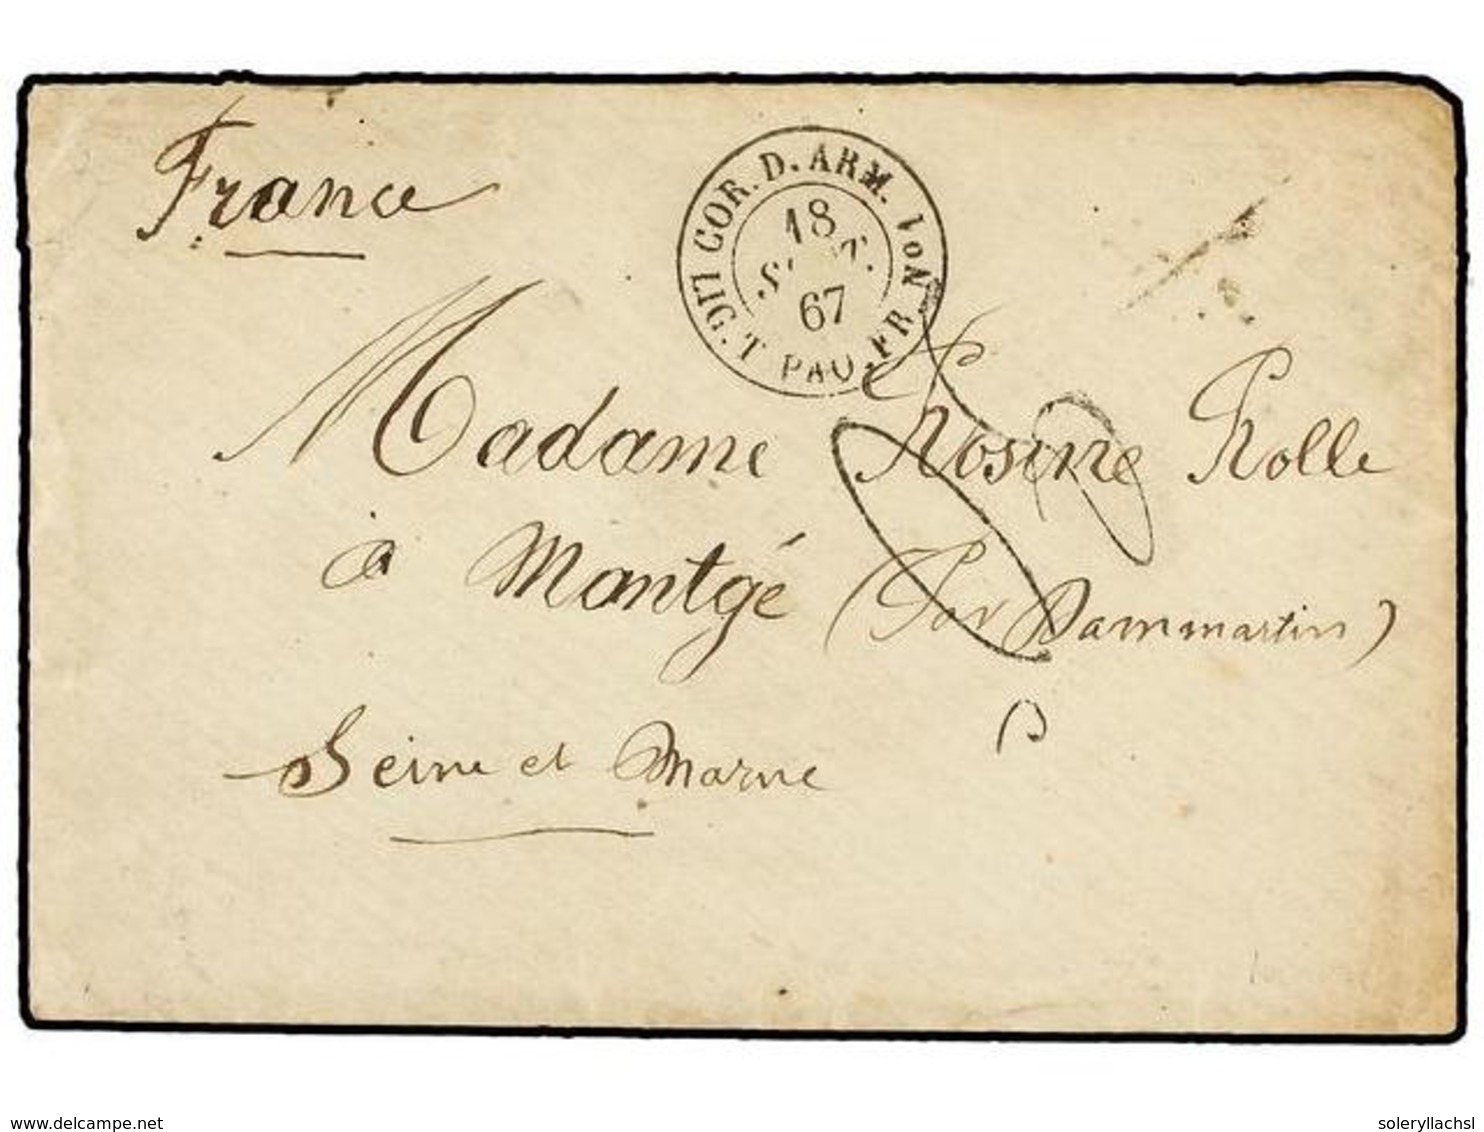 France
LIG. T PAQ. FR N No 1 COR. D. ARM.
18
67
Madame Rosine Rolle
à Montgé (Par Dammartin)
Seine et Marne
delcampe.net
soleryllachsl